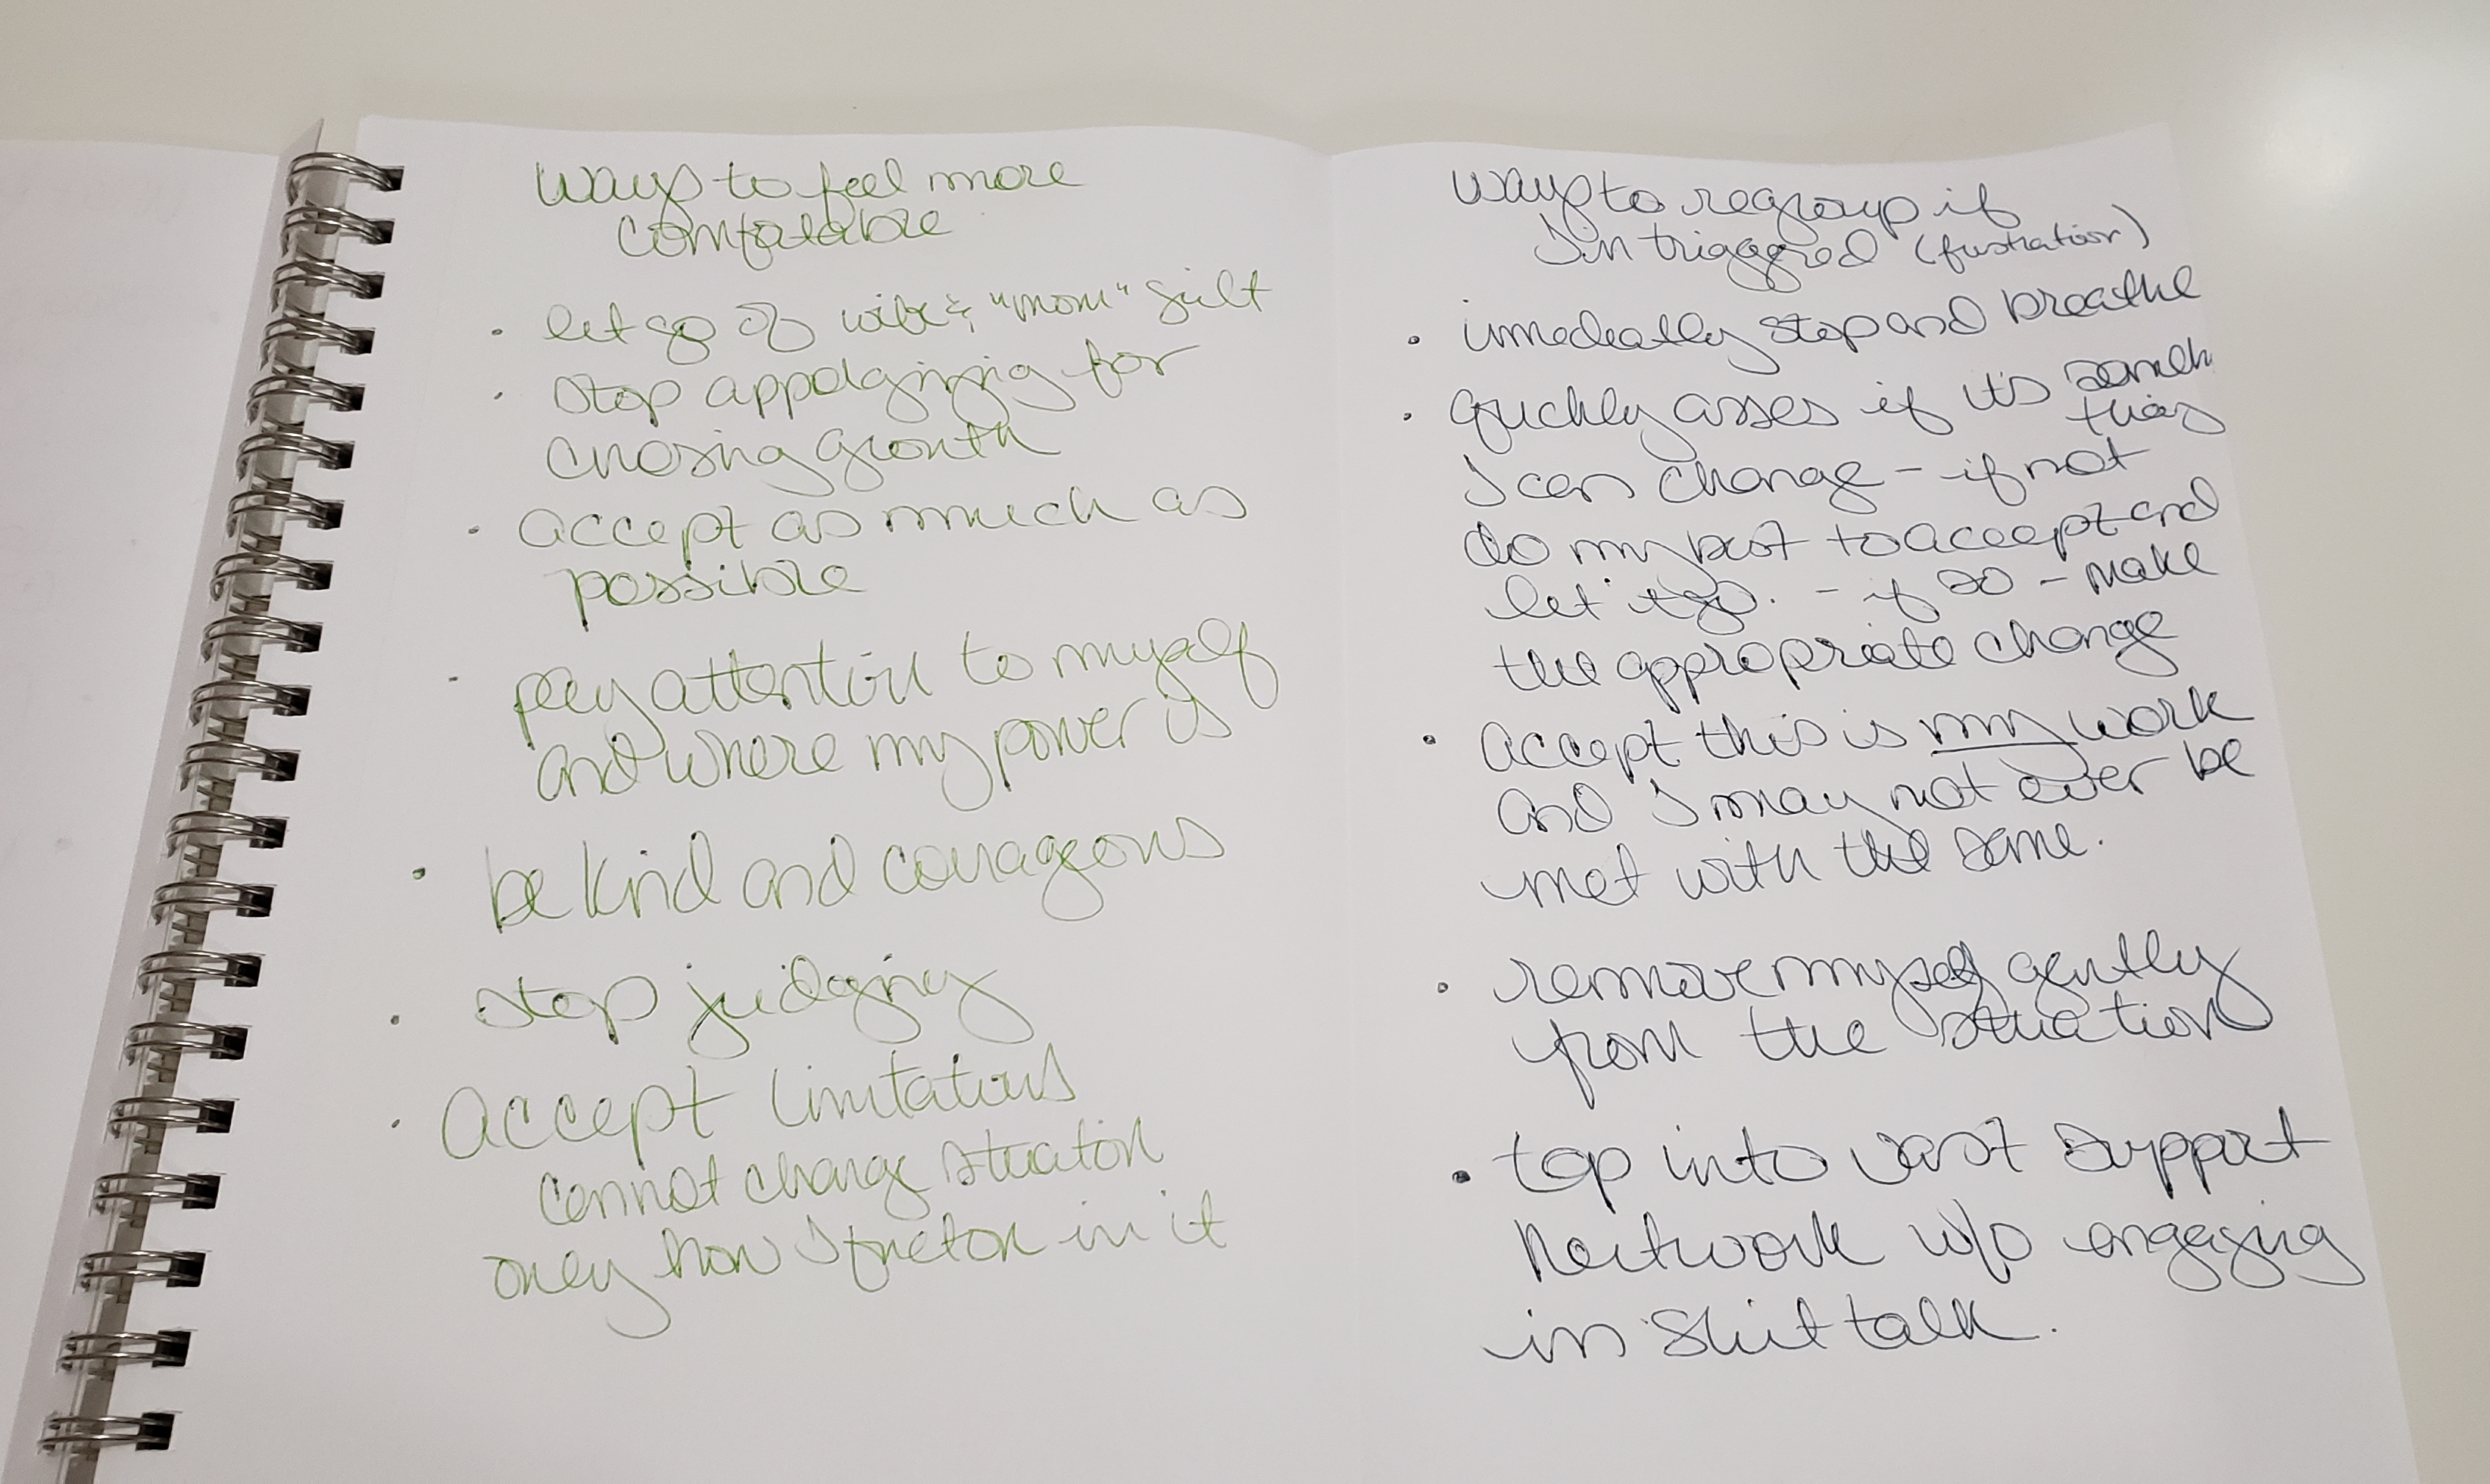 Ways to feel more
comfatable
• let go of wife & "mom" guilt
• Stop appolgizing for
chosing growth
• accept as much as
possible
• pay attention to myself
and where my power is
• be kind and courageous
• Stop judging
• Accept limitations
cannot change situation
only how I function in it
ways to regroup if
I'm triggered (frustration)
• immediatly stop and breathe
• quickly asses if it's someth
thing
I can change - if not
do my best to accept and
let it go. - if so - make
the appropriate change
• accept this is my work
and I may not ever be
met with the same.
• remove myself gently
from the situation
• tap into vast support
Network w/o engaging
in shit talk.